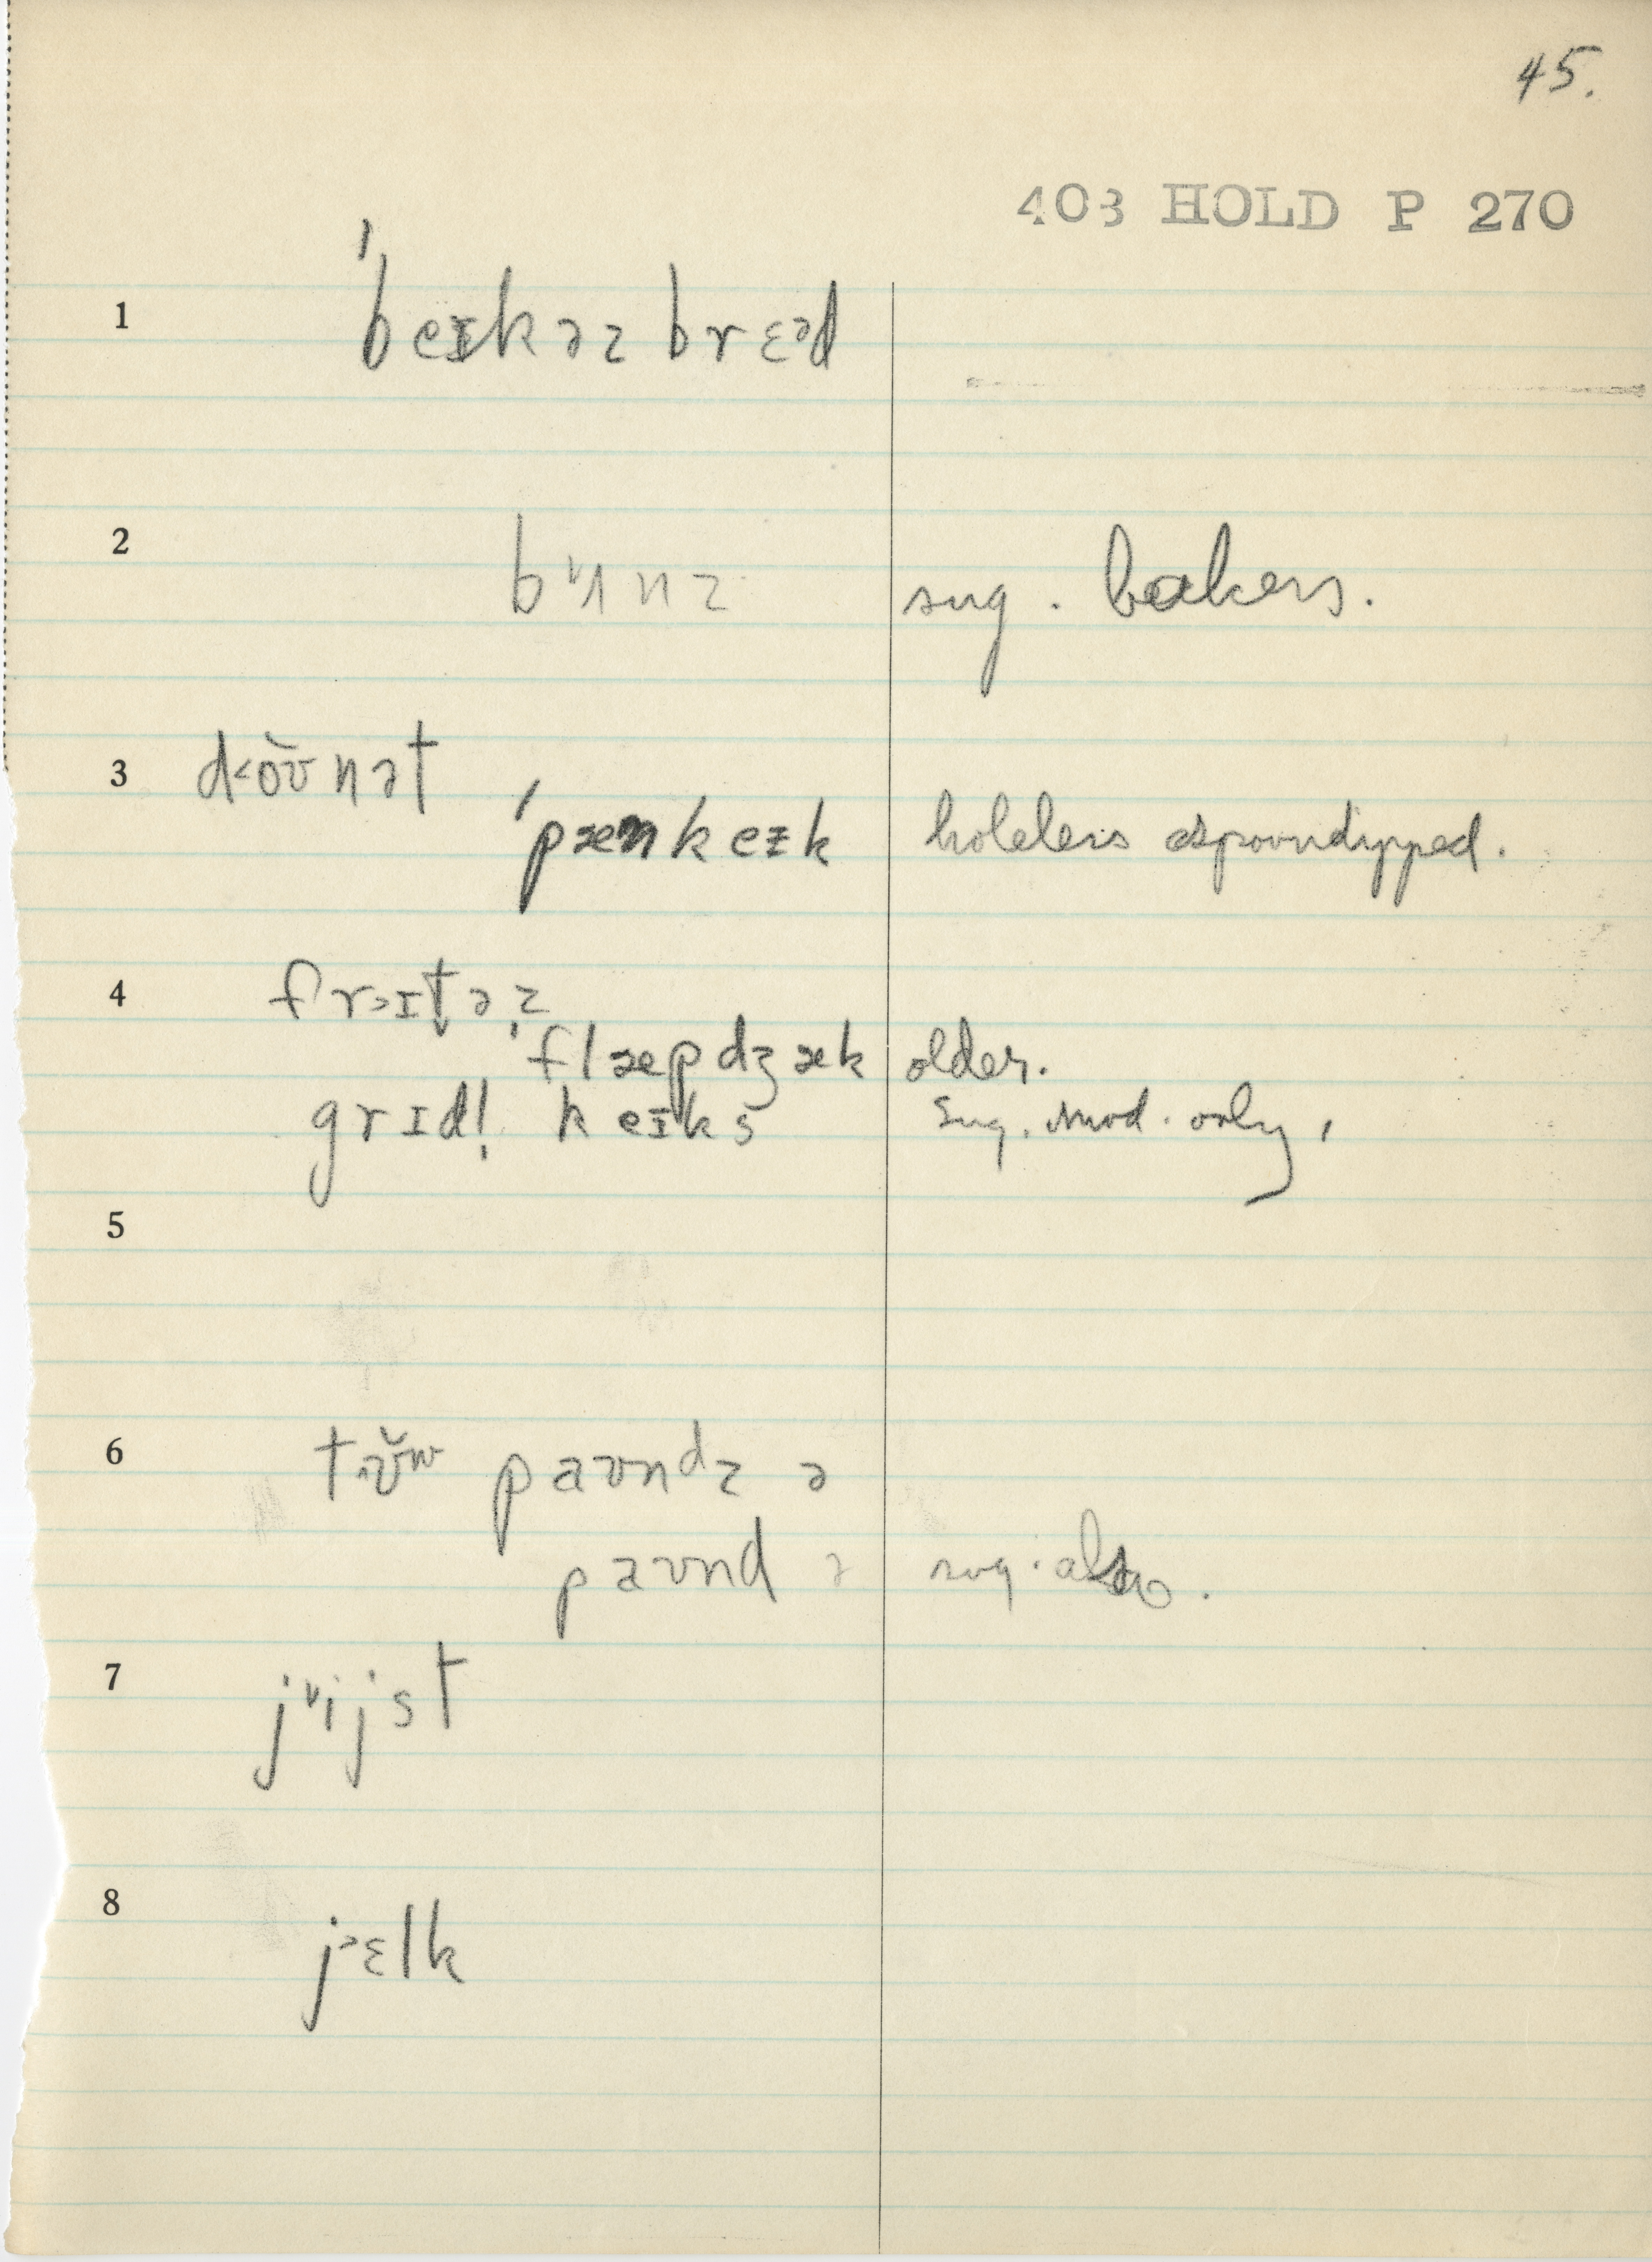 45.
403 HOLD P 270
1 ˈbeɪkəz brɛᵊd
2 bᵞʌnz sug. bakers.
3 d˂o̬ʊnət
ˈpænkeɪk holeless spoondipped.
4 frɔɪt̬əz
ˈflæpdʒæk older.
grɪdl̩ keɪks sug. mod. only,
5
6 tʊ̆ʷ paʊnᵈz ə
paʊnd ə sug. also.
7 jᵞijst
8 j˃ɛlk